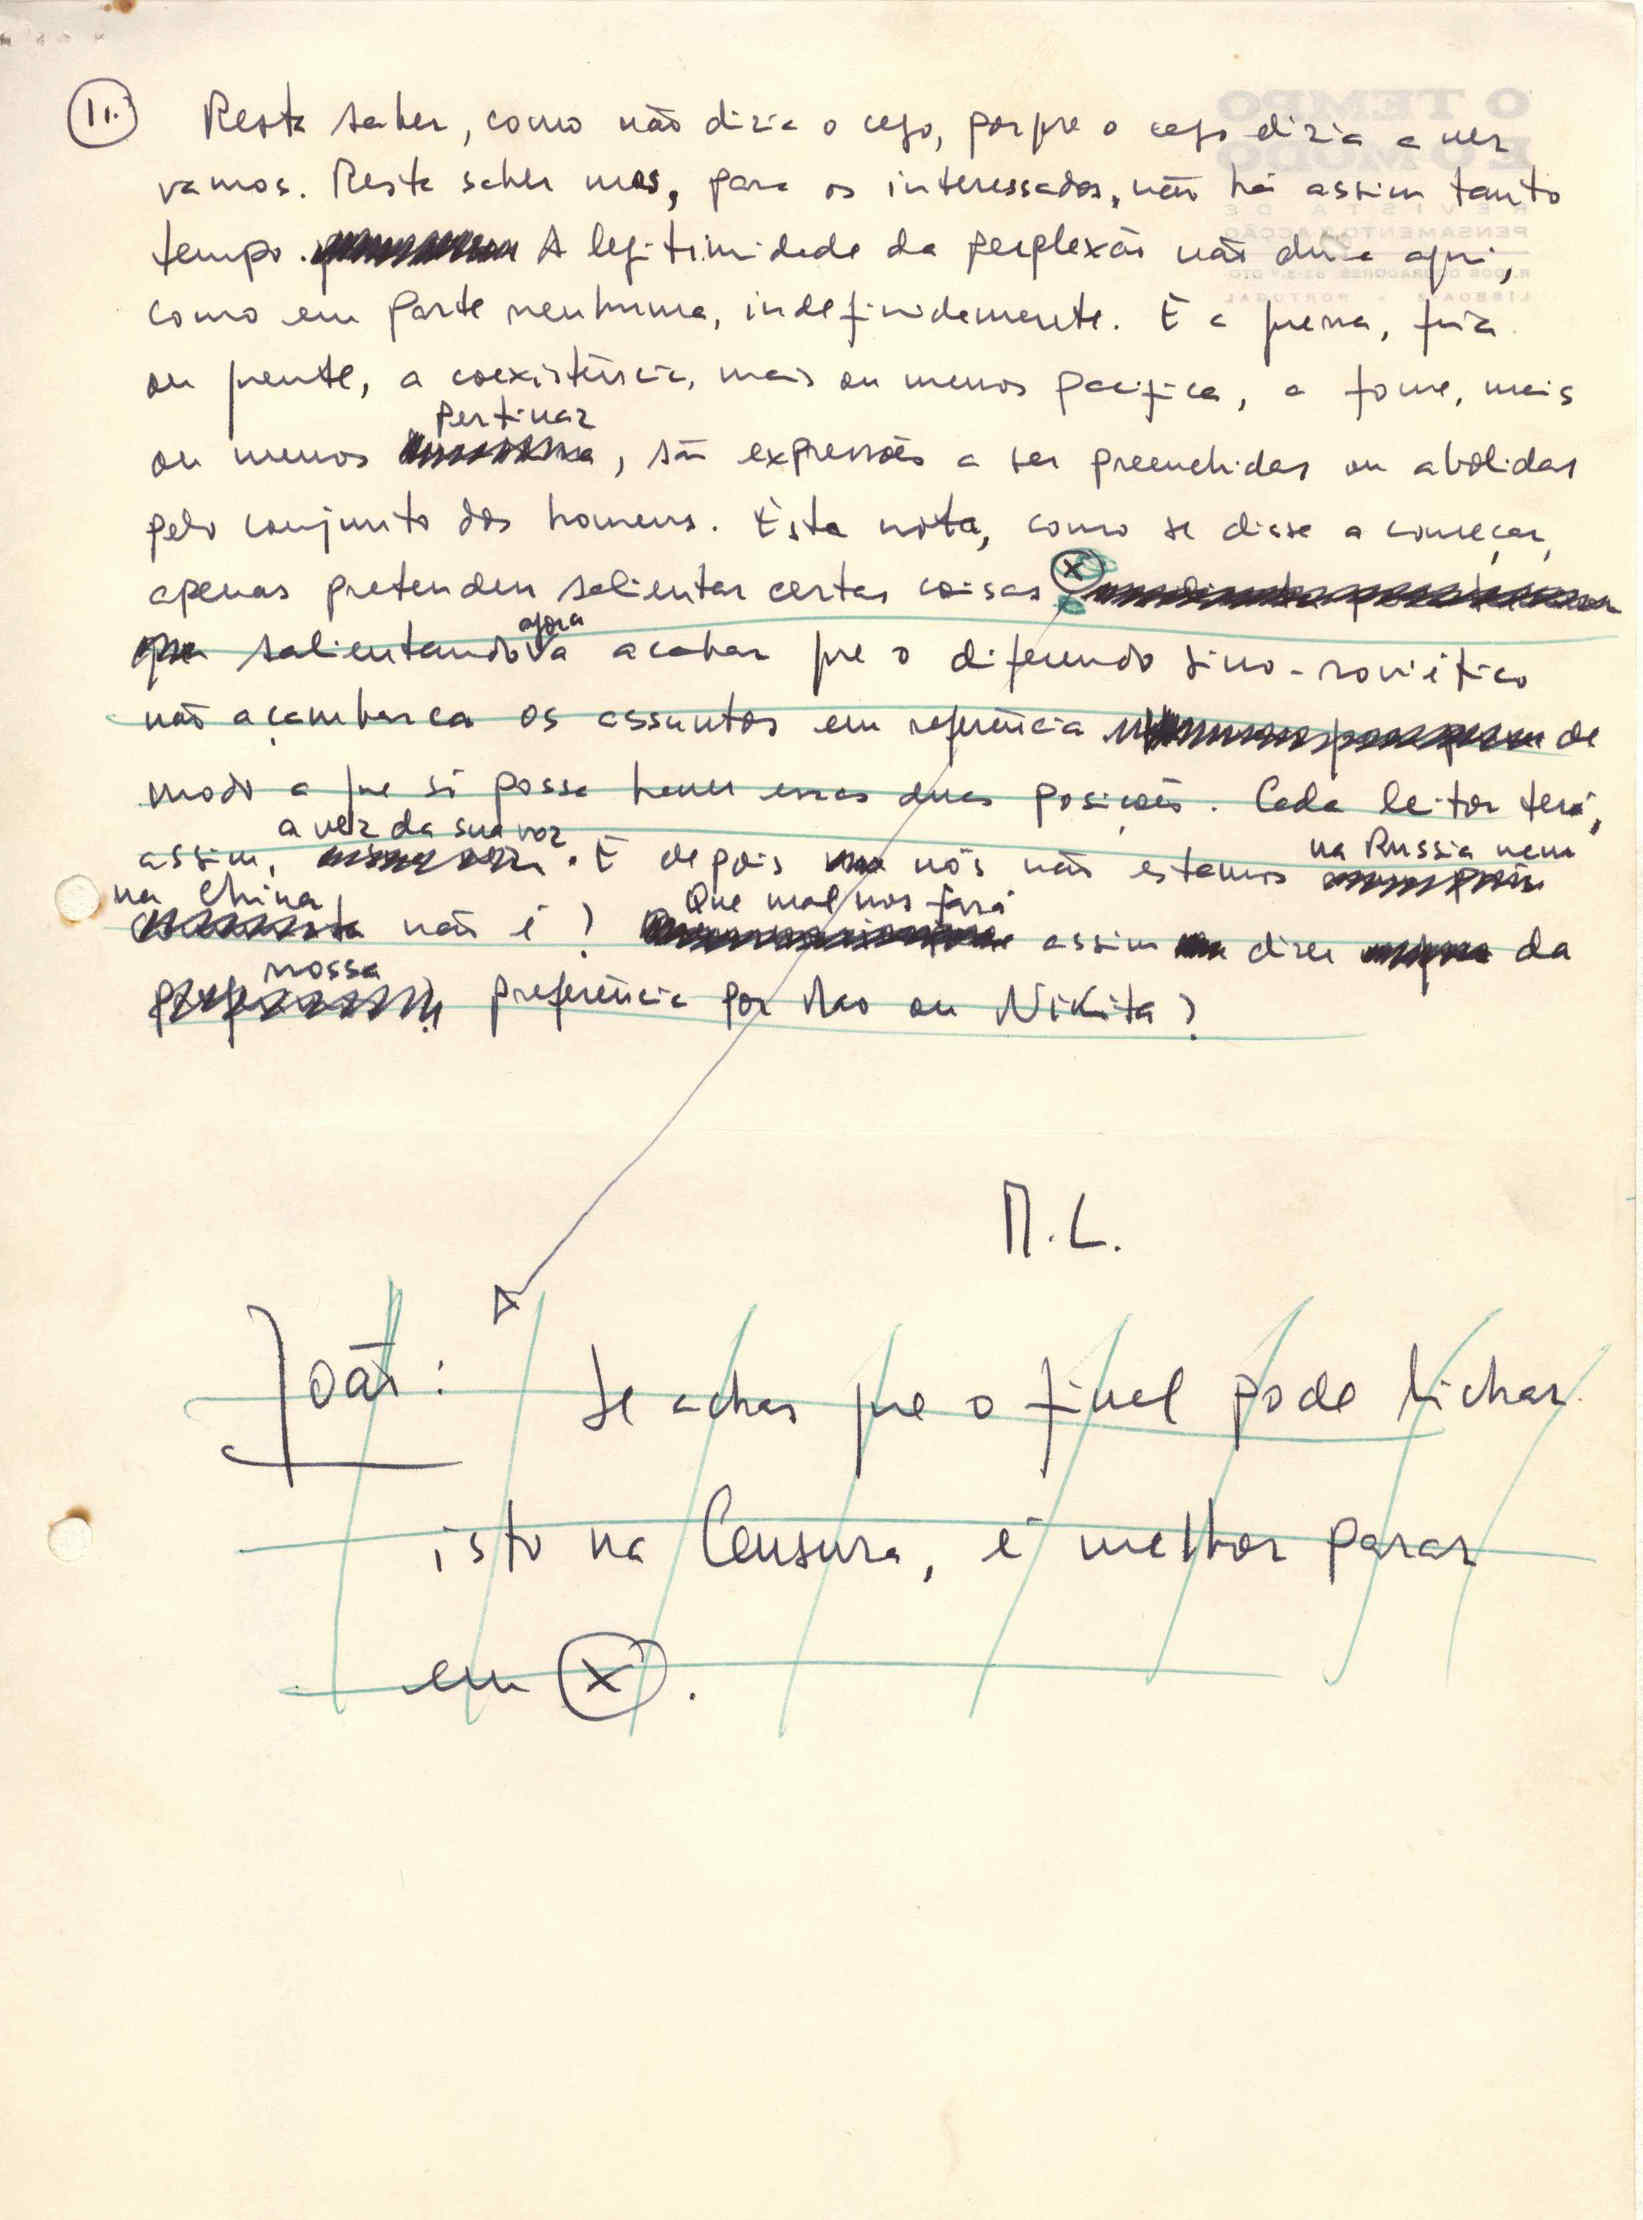 11.
Resta saber, como não diria o cego, porque o cego diria a ver
vamos. Resta saber mas, para os interessados, não há assim tanto
tempo. A legitimidade da perplexão não dura aqui,
como em parte nenhuma, indefinidamente. E a guerra, fria
ou quente, a coexistência, mais ou menos pacífica, a fome, mais
ou menos pertinaz, são expressões a ser preenchidas ou abolidas
pelo conjunto dos homens. Esta nota, como se disse a começar,
apenas pretendeu salientar certas coisas x
salientando agora a acabar que o diferendo sino-soviético
não açambarca os assuntos em referência de
modo a que só possa haver essas duas posições. Cada leitor terá,
assim, a vez da sua voz. E depois nós não estamos na Russia nem
na China, não é? Que mal nos fará assim dizer da
nossa preferência por Mao ou Nikita?
M.L.
João: Se achas que o final pode lichar
isto na Censura, é melhor parar
em x.
O TEMPO
E O MODO
REVISTA DE
PENSAMENTO E ACÇÃO
LISBOA 2 - PORTUGAL